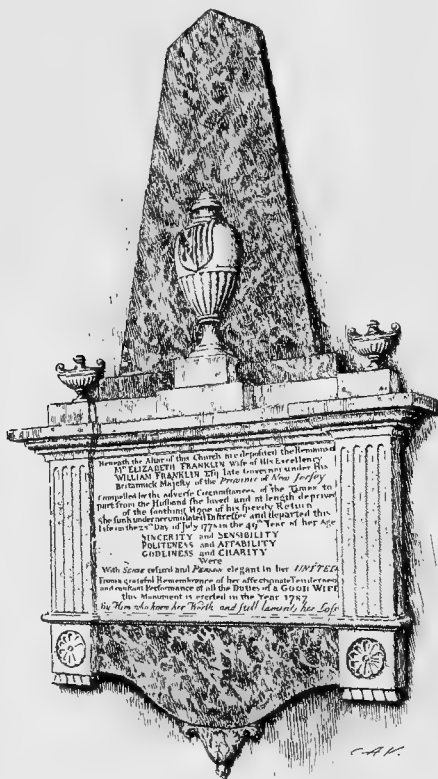 Beneath the Altar of this Church are deposited the Remains of
Mrs ELIZABETH FRANKLIN Wife of His Excellency
WILLIAM FRANKLIN Esq late Governor under His
Britannick Majesty of the Province of New Jersey
Compelled by the adverse Circumstances of the Times to
part from the Husband she loved and at length deprived
of the soothing Hope of his speedy Return
She sunk under accumulated Distresses and departed this
Life on the Day of July 177 in the 49th Year of her Age
SINCERITY and SENSIBILITY
POLITENESS and AFFABILITY
GODLINESS and CHARITY
Were
With SENSE refined and PERSON elegant in her UNITED
From a grateful Remembrance of her affectionate Tenderness
and constant Performance of all the Duties of a GOOD WIFE
this Monument is erected in the Year 1787
by Him who knew her Worth and still laments her Loss